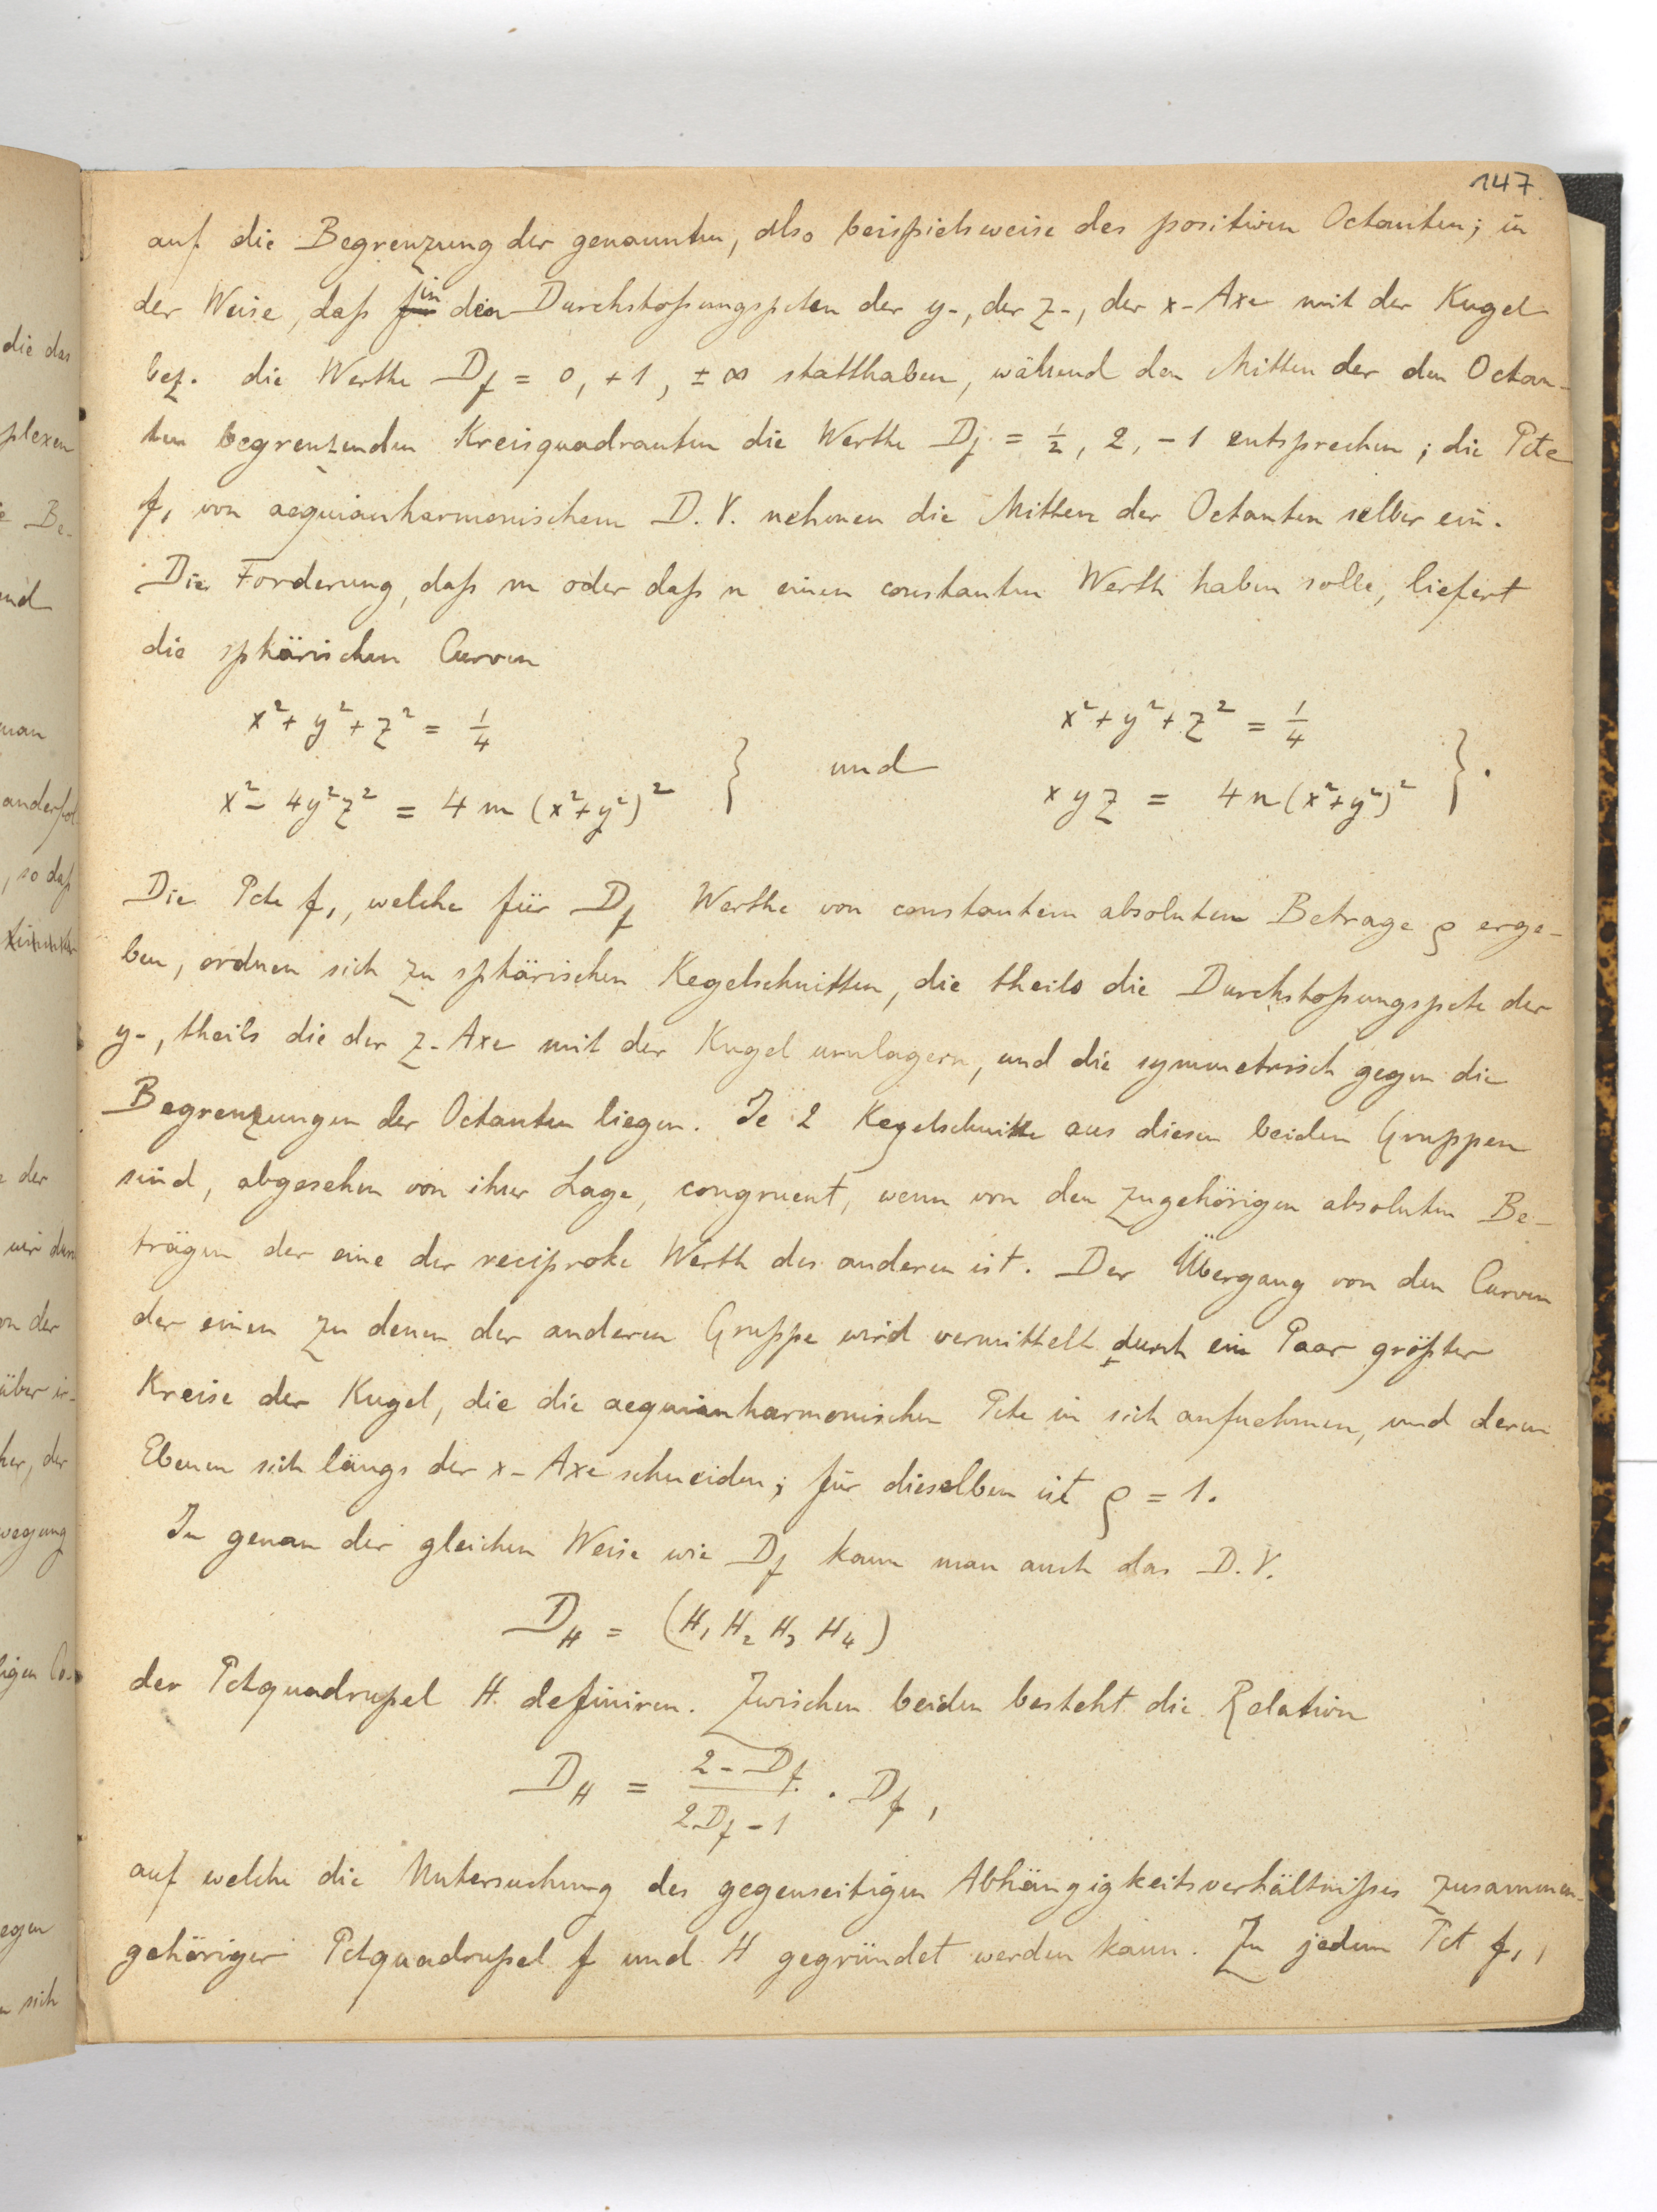 147
auf die Begrenzung der genannten, also beispielsweise des positiven Octanten; in
der Weise, daß in den Durchstoßungspcten der y-, der z-, der x-Axe mit der Kugel
bez. die Werthe D_f = 0, +1, ±∞ statthaben, während den Mitten der den Octan-
ten begrenzenden Kreisquadranten die Werthe D_f = 1/2, 2, -1 entsprechen; die Pcte
f₁ von aequianharmonischem D.V. nehmen die Mitten der Octanten selber ein.
Die Forderung, daß m oder daß n einen constanten Werth haben solle, liefert
die sphärischen Curven
x² + y² + z² = 1/4 x² + y² + z² = 1/4
} und }.
x² - 4y²z² = 4m(x²+y²)² xyz = 4n(x²+y²)²
Die Pcte f₁, welche für D_f Werthe von constantem absoluten Betrage ρ erge-
ben, ordnen sich zu sphärischen Kegelschnitten, die theils die Durchstoßungspcte der
y-, theils die der z-Axe mit der Kugel umlagern, und die symmetrisch gegen die
Begrenzungen der Octanten liegen. Je 2 Kegelschnitte aus diesen beiden Gruppen
sind, abgesehen von ihrer Lage, congruent, wenn von den zugehörigen absoluten Be-
trägen der eine der reciproke Werth des anderen ist. Der Übergang von den Curven
der einen zu denen der anderen Gruppe wird vermittelt durch ein Paar größter
Kreise der Kugel, die die aequianharmonischen Pcte in sich aufnehmen, und deren
Ebenen sich längs der x-Axe schneiden; für dieselben ist ρ = 1.
In genau der gleichen Weise wie D_f kann man auch das D.V.
D_H = (H₁ H₂ H₃ H₄)
der Pctquadrupel H definiren. Zwischen beiden besteht die Relation
D_H = (2 - D_f)/(2D_f - 1) · D_f,
auf welche die Untersuchung des gegenseitigen Abhängigkeitsverhältnißes zusammen-
gehöriger Pctquadrupel f und H gegründet werden kann. Zu jedem Pct f₁,
die das
plexen
Be-
und
man
, so daß
der
von der
über ir-
her, der
wegung
egen
sich